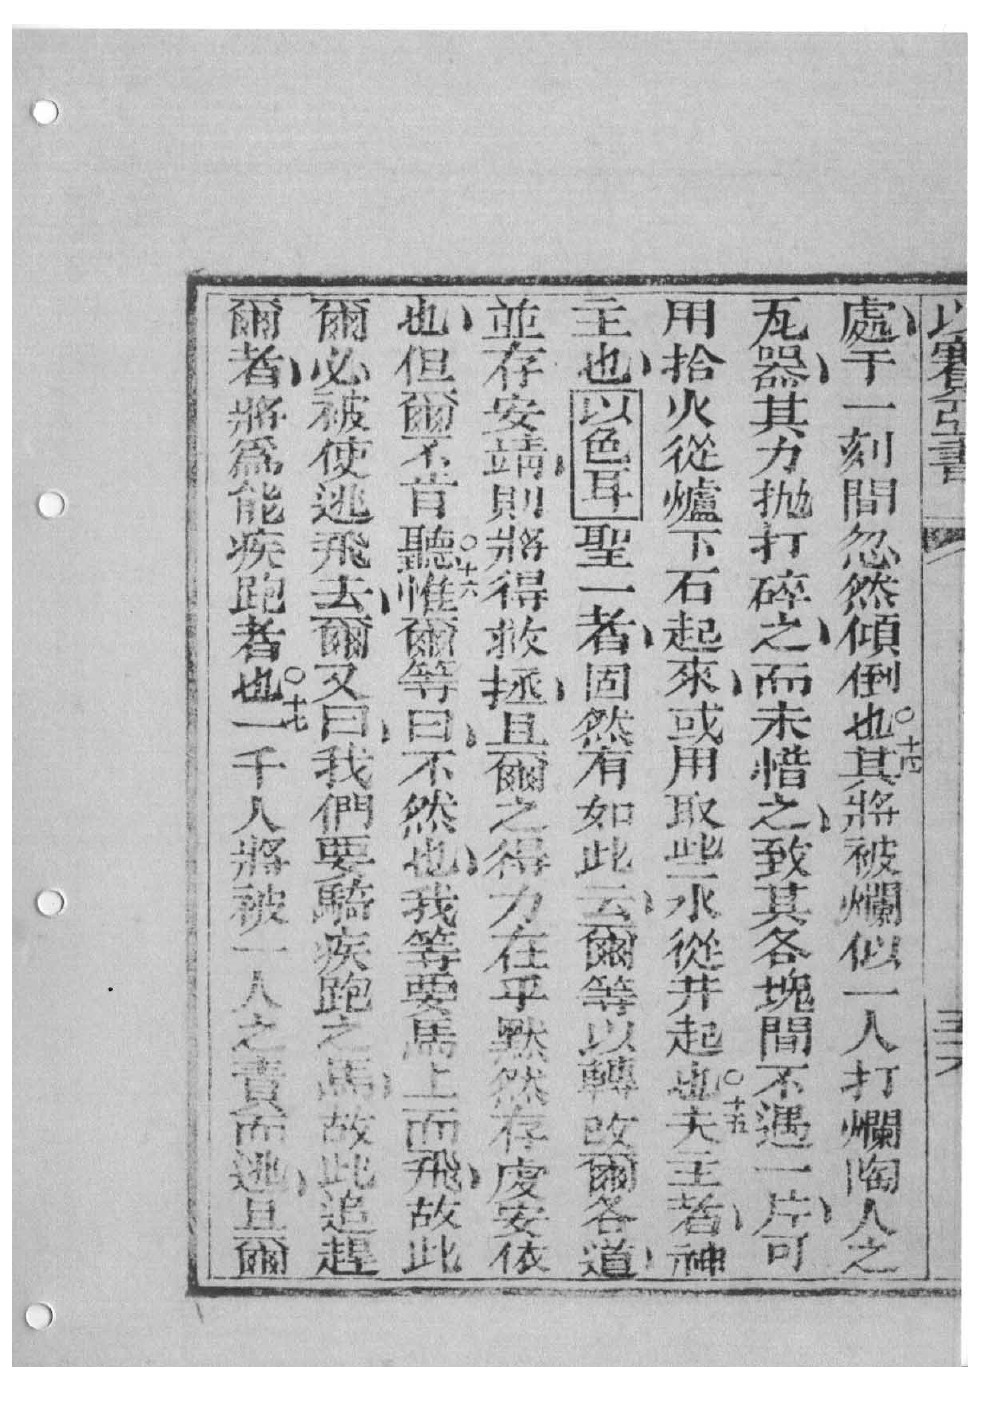 以賽亞書
處、于一刻間忽然傾倒也○十四其將被爛似一人打爛陶人之
瓦器、其力拋打碎之、而未惜之、致其各塊間不遇一片、可
用拾火從爐下石起來、或用取些水從井起也○十五夫主者、神
主也、以色耳聖一者、固然有如此云、爾等以轉改爾各道、
並存安靖、則將得救拯、且爾之得力在乎默然存虔安依
也、但爾不肯聽○十六惟爾等曰、不然也、我等要馬上而飛、故此
爾必被使逃飛去、爾又曰、我們要騎疾跑之馬、故此追趕
爾者、將爲能疾跑者也○十七一千人將被一人之責而逃、且爾